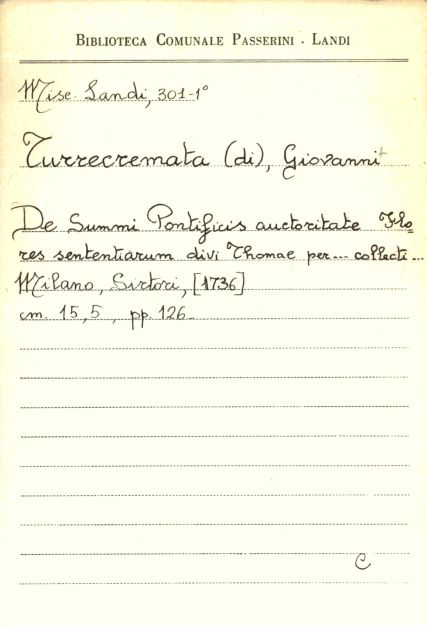 BIBLIOTECA COMUNALE PASSERINI - LANDI
Misc. Landi, 301-1°
Turrecremata (di), Giovanni +
De Summi Pontificis auctoritate Flo=
res sententiarum divi Thomae per... collecti...
Milano, Sirtori, [1736]
cm. 15,5, pp. 126
C